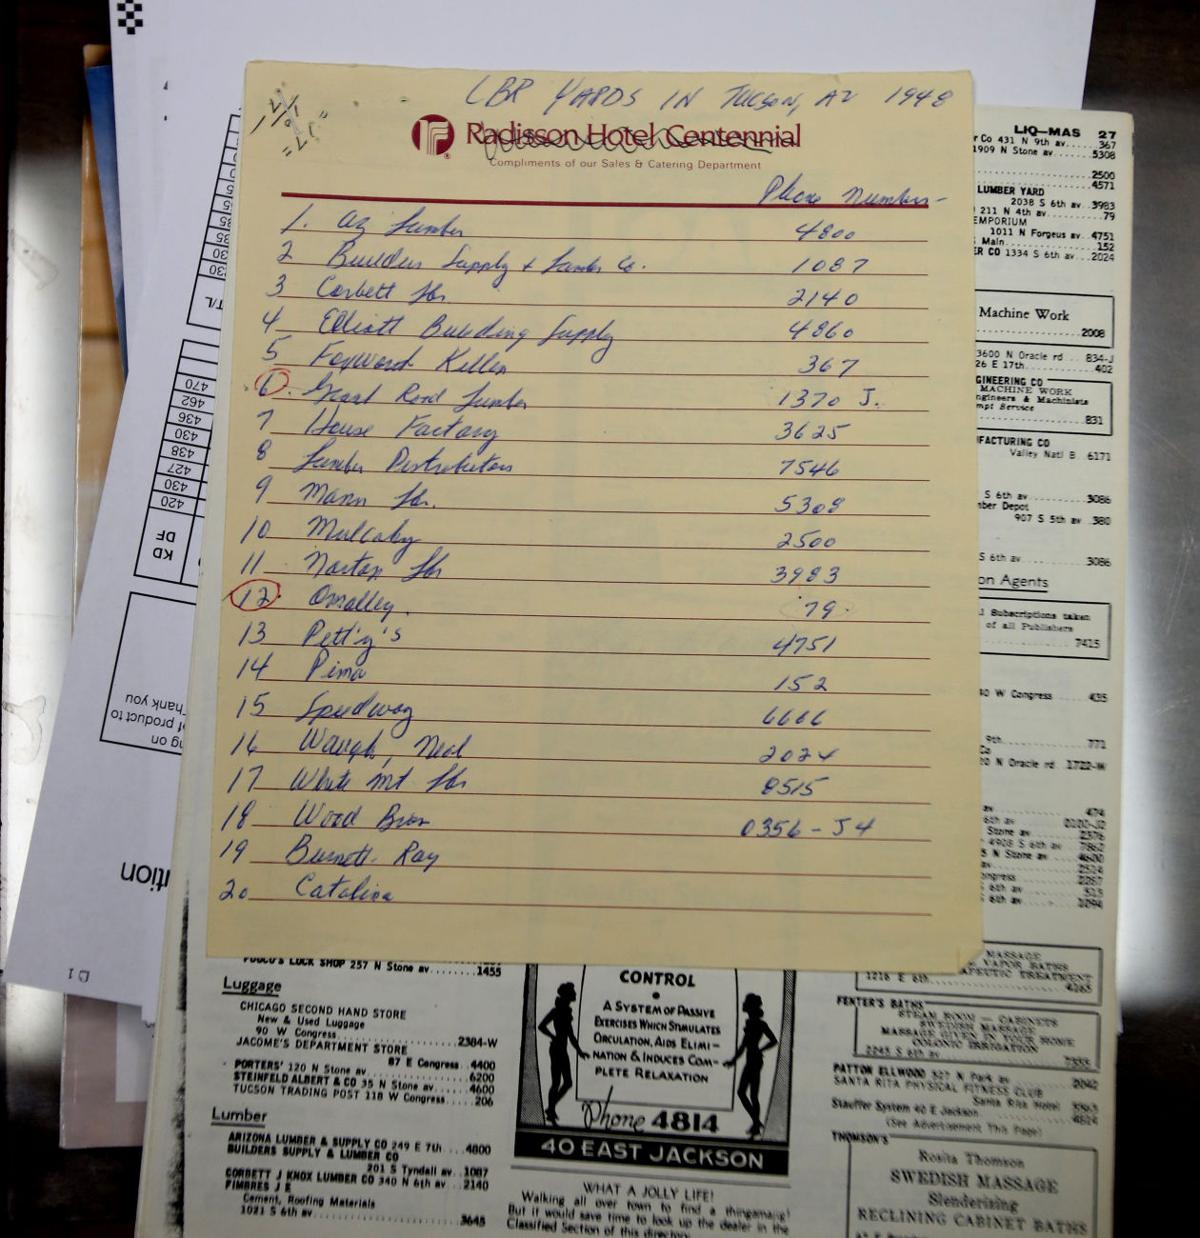 LBR YARDS IN TUCSON, AZ 1948
Radisson Hotel Centennial
Compliments of our Sales & Catering Department
Phone Numbers
1. AZ Lumber 4800
2 Builders Supply & Lumber Co. 1087
3 Corbett Lbr. 2140
4 Elliott Building Supply 4860
5 Foxworth Kellen 367
6. Grant Road Lumber 1370 J.
7 House Factory 3625
8 Lumber Distributors 7546
9 Mann Lbr. 5308
10 Mulcahy 2500
11 Norton Lbr 3983
12 Omalley. 79.
13 Pettig's 4751
14 Pima 152
15 Speedway 6666
16 Waugh, Neal 2024
17 White Mt Lbr 8515
18 Wood Bros 0356-J4
19 Burnett-Ray
20 Catalina
LIQ—MAS 27
Co 431 N 9th av.....367
1909 N Stone av.....5308
2500
4571
LUMBER YARD
2038 S 6th av 3983
211 N 4th av.....79
EMPORIUM
1011 N Forgeus av 4751
Main.....152
CO 1334 S 6th av...2024
Machine Work
2008
3600 N Oracle rd ... 834-J
26 E 17th.....402
GINEERING CO
MACHINE WORK
ngineers & Machinists
mpt Service
831
FACTURING CO
Valley Natl B 6171
S 6th av.....3086
ber Depot
907 S 5th av 380
S 6th av.....3086
on Agents
Subscriptions taken
of all Publishers
7415
40 W Congress 435
9th.....771
Co
20 N Oracle rd 1722-W
T/L
470
462
436
430
438
427
430
420
KD
DF
ng on
of product to
Thank you
LOCK SHOP 257 N Stone av.....1455
Luggage
CHICAGO SECOND HAND STORE
New & Used Luggage
90 W Congress.....2384-W
JACOME'S DEPARTMENT STORE
87 E Congress 4400
PORTERS' 120 N Stone av.....6200
STEINFELD ALBERT & CO 35 N Stone av....4600
TUCSON TRADING POST 118 W Congress....206
Lumber
ARIZONA LUMBER & SUPPLY CO 249 E 7th..4800
BUILDERS SUPPLY & LUMBER CO
201 S Tyndall av 1087
CORBETT J KNOX LUMBER CO 340 N 6th av..2140
FIMBRES J E
Cement, Roofing Materials
1021 S 6th av.....3645
CONTROL
A SYSTEM OF PASSIVE
EXERCISES WHICH STIMULATES
CIRCULATION, AIDS ELIMI-
NATION & INDUCES COM-
PLETE RELAXATION
Phone 4814
40 EAST JACKSON
WHAT A JOLLY LIFE!
Walking all over town to find a thingamajig!
But it would save time to look up the dealer in the
Classified Section of this directory.
MASSAGE
VAPOR BATHS
APEUTIC TREATMENT
1216 E 6th.....4265
FENTER'S BATHS
STEAM ROOM — CABINETS
SWEDISH MASSAGE
MASSAGE GIVEN IN YOUR HOME
COLONIC IRRIGATION
2245 S 6th av
PATTON ELLWOOD 527 N Park av
SANTA RITA PHYSICAL FITNESS CLUB
Santa Rita Hotel
Stauffer System 40 E Jackson.....4814
(See Advertisement This Page)
THOMSON'S
Rosita Thomson
SWEDISH MASSAGE
Slenderizing
RECLINING CABINET BATHS